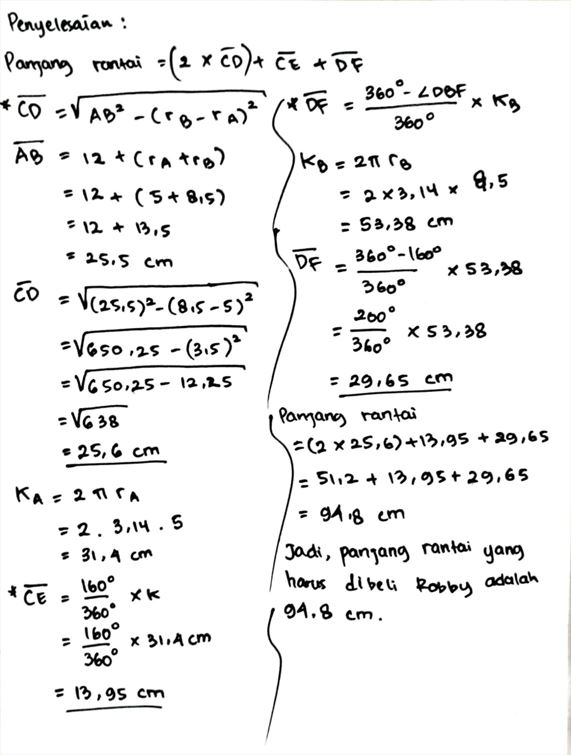 Penyelesaian :
Panjang rantai = (2 × C̅D̅) + C̅E̅ + D̅F̅
* C̅D̅ = √(AB² - (rB - rA)²)
A̅B̅ = 12 + (rA + rB)
= 12 + (5 + 8,5)
= 12 + 13,5
= 25,5 cm
C̅D̅ = √((25,5)² - (8,5 - 5)²)
= √(650,25 - (3,5)²)
= √(650,25 - 12,25)
= √638
= 25,6 cm
KA = 2 π rA
= 2 . 3,14 . 5
= 31,4 cm
* C̅E̅ = 160°/360° × K
= 160°/360° × 31,4 cm
= 13,95 cm
* D̅F̅ = 360° - ∠DBF/360° × KB
KB = 2π rB
= 2 × 3,14 × 8,5
= 53,38 cm
D̅F̅ = 360° - 160°/360° × 53,38
= 200°/360° × 53,38
= 29,65 cm
Panjang rantai
= (2 × 25,6) + 13,95 + 29,65
= 51,2 + 13,95 + 29,65
= 94,8 cm
Jadi, panjang rantai yang
harus dibeli Robby adalah
94.8 cm.